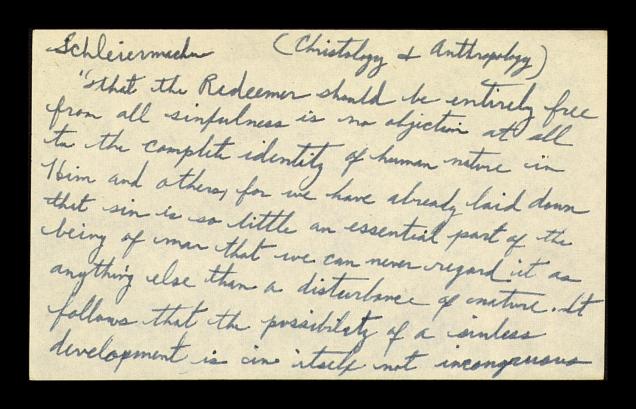 Schleiermacher (Christology & Anthropology)
"That the Redeemer should be entirely free
from all sinfulness is no objection at all
to the complete identity of human nature in
Him and others, for we have already laid down
that sin is so little an essential part of the
being of man that we can never regard it as
anything else than a disturbance of nature. It
follows that the possibility of a sinless
development is in itself not incongruous